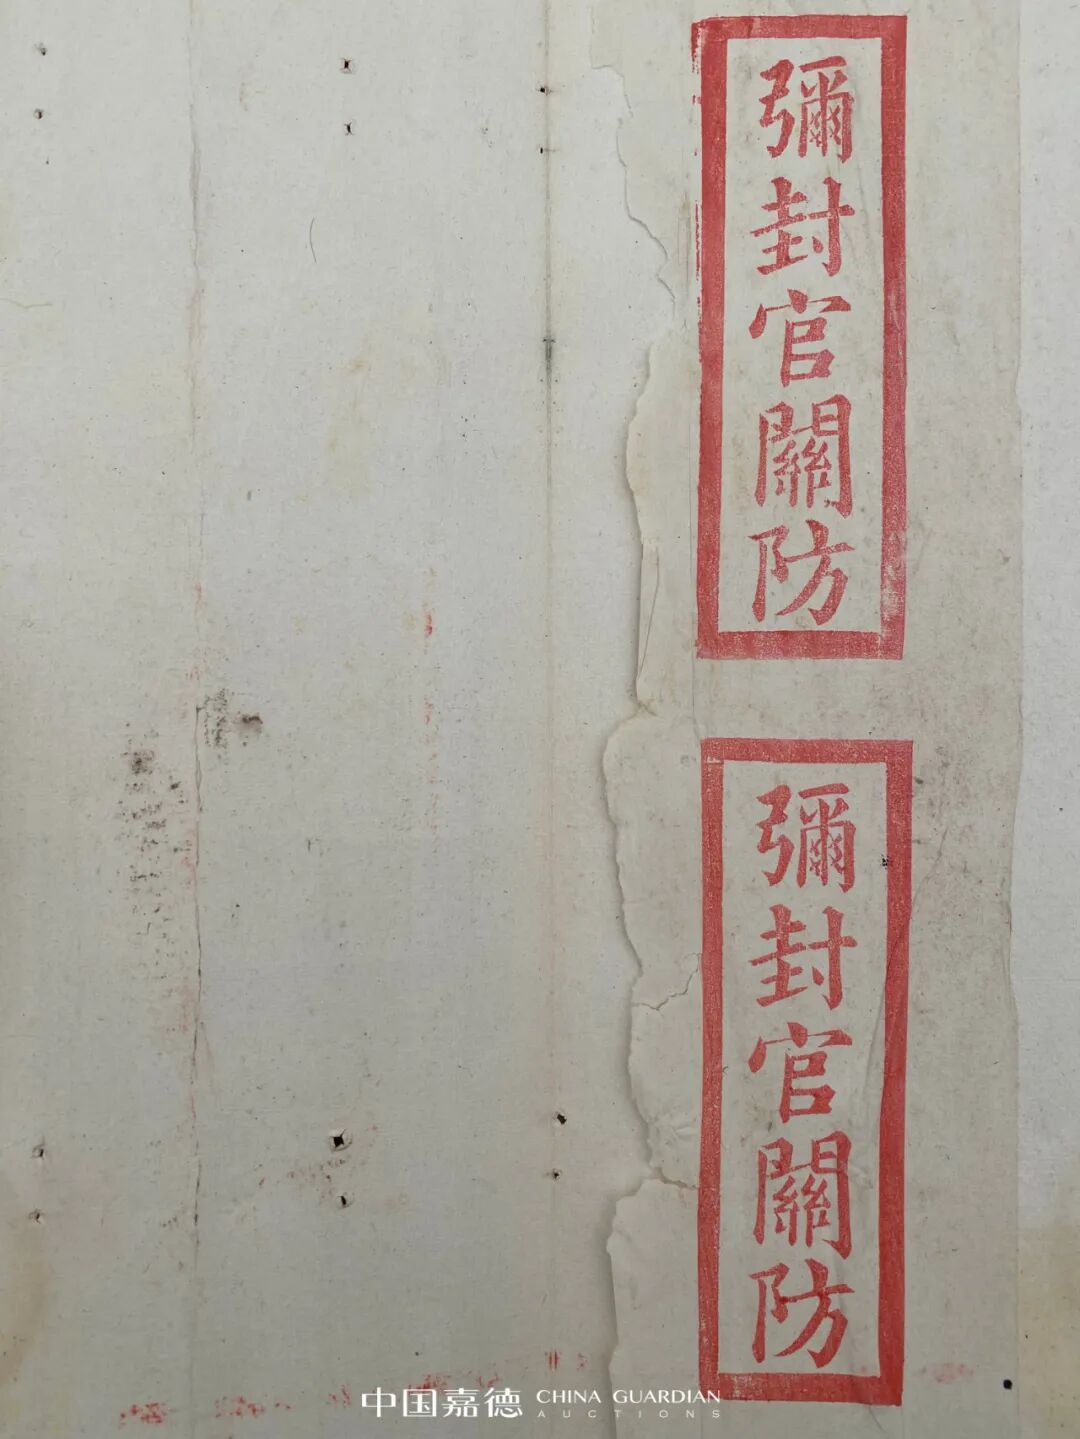 彌封官關防
彌封官關防
中国嘉德 CHINA GUARDIAN
AUCTIONS